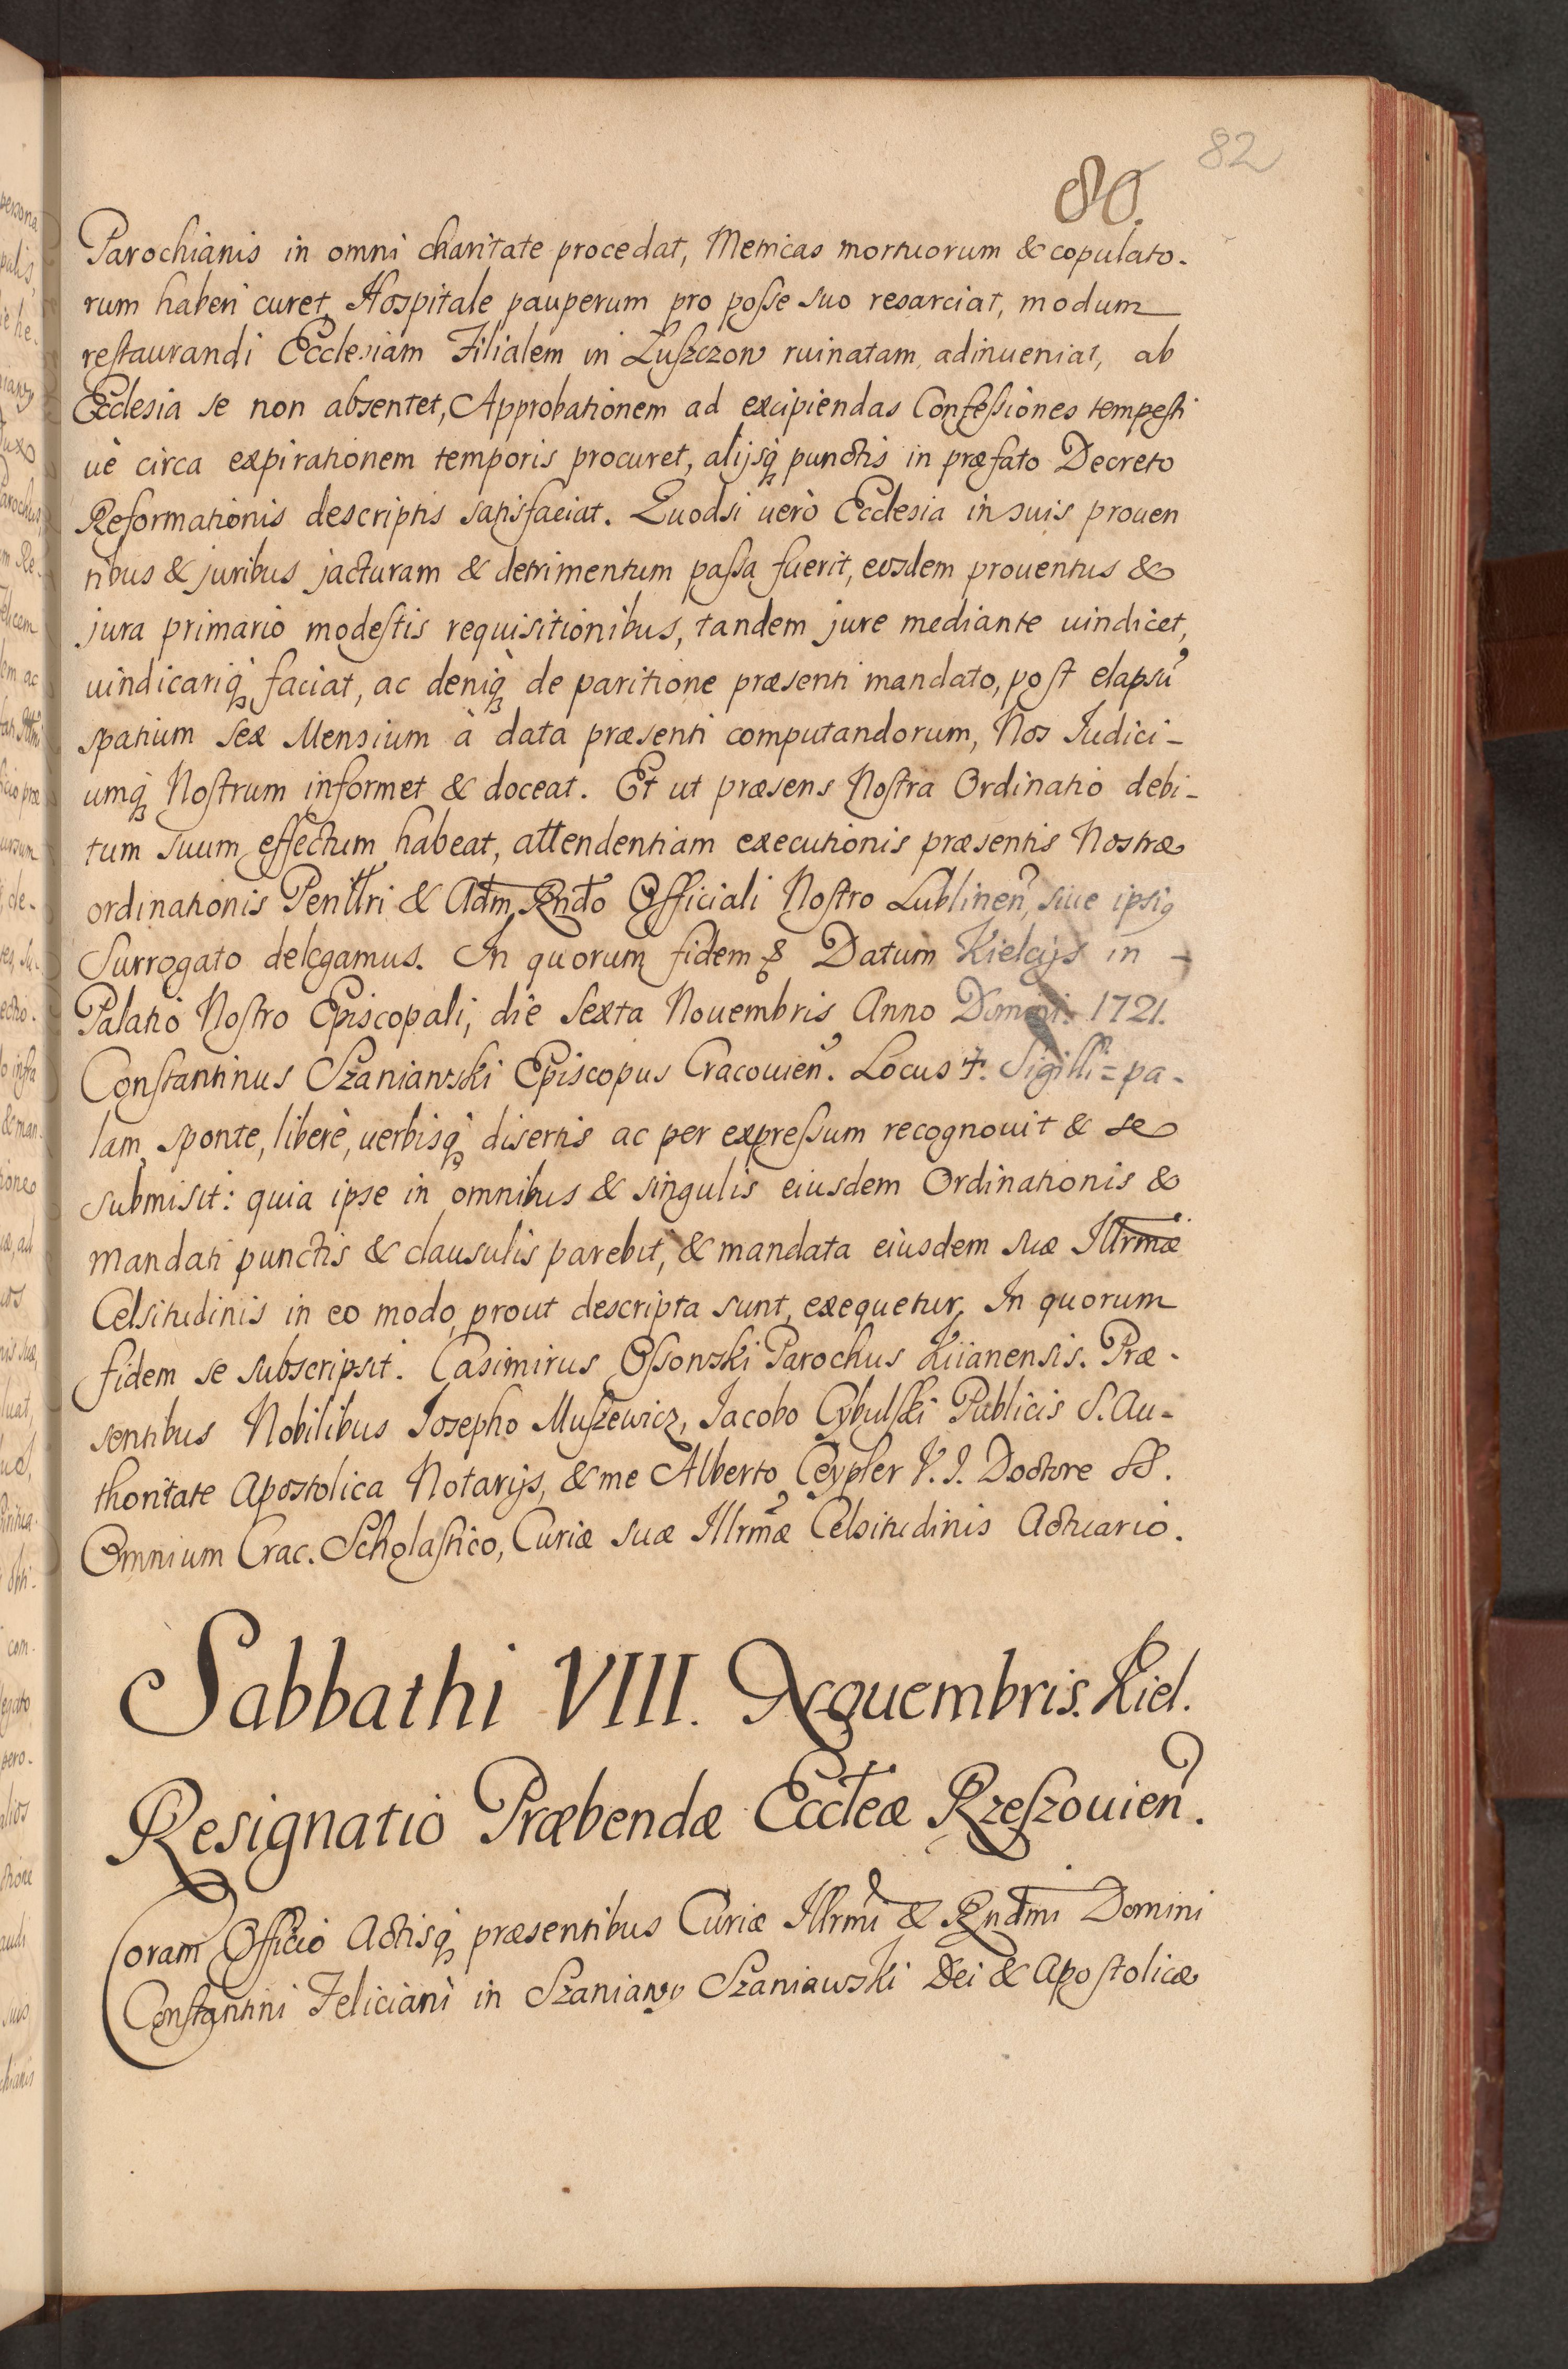 82
80.
Parochianis in omni charitate procedat, Metricas mortuorum & copulato-
rum haberi curet, Hospitale pauperum pro posse suo resarciat, modum
restaurandi Ecclesiam Filialem in Łuszczow ruinatam adinueniat, ab
Ecclesia se non absentet, Approbationem ad excipiendas Confessiones tempesti
uè circa expirationem temporis procuret, alijsq́ punctis in præfato Decreto
Reformationis descriptis satisfaciat. Quodsi uerò Ecclesia in suis prouen
tibus & juribus jacturam & detrimentum passa fuerit, eosdem prouentus &
jura primario modestis requisitionibus, tandem jure mediante uindicet,
uindicariq́ faciat, ac deniq̀ de paritione præsenti mandato, post elapsũ
spatium sex Mensium à data præsenti computandorum, Nos Iudici-
umq́ Nostrum informet & doceat. Et ut præsens Nostra Ordinatio debi-
tum suum effectum habeat, attendentiam executionis præsentis Nostræ
ordinationis Penlłri & Adm Rndo Officiali Nostro Lublinen̉, siue ipsiq
Surrogato delegamus. In quorum fidem & Datum Kielcijs in
Palatio Nostro Episcopali, die Sexta Nouembris Anno Domini. 1721.
Constantinus Szaniawski Episcopus Cracouien̉. Locus †. Sigilli = pa-
lam, sponte, liberè, uerbisq́ disertis ac per expressum recognouit & se
submisit: quia ipse in omnibus & singulis eiusdem Ordinationis &
mandati punctis & clausulis parebit, & mandata eiusdem suæ Illrmæ
Celsitudinis in eo modo, prout descripta sunt, exequetur. In quorum
fidem se subscripsit. Casimirus Ossowski Parochus Kiianensis. Præ-
sentibus Nobilibus Iosepho Muszewicz, Iacobo Cybulski Publicis S. Au-
thoritate Apostolica Notarijs, & me Alberto Ceypler V. I. Doctore SS.
Omnium Crac. Scholastico, Curiæ suæ Illrmæ Celsitudinis Actuario.
Sabbathi VIII. Nouembris. Kiel.
Resignatio Præbendæ Eccleæ Rzeszouien̉.
Coram Officio Actisq́ præsentibus Curiæ Illrmi & Rndmi Domini
Constantini Feliciani in Szaniawy Szaniawski Dei & Apostolicæ